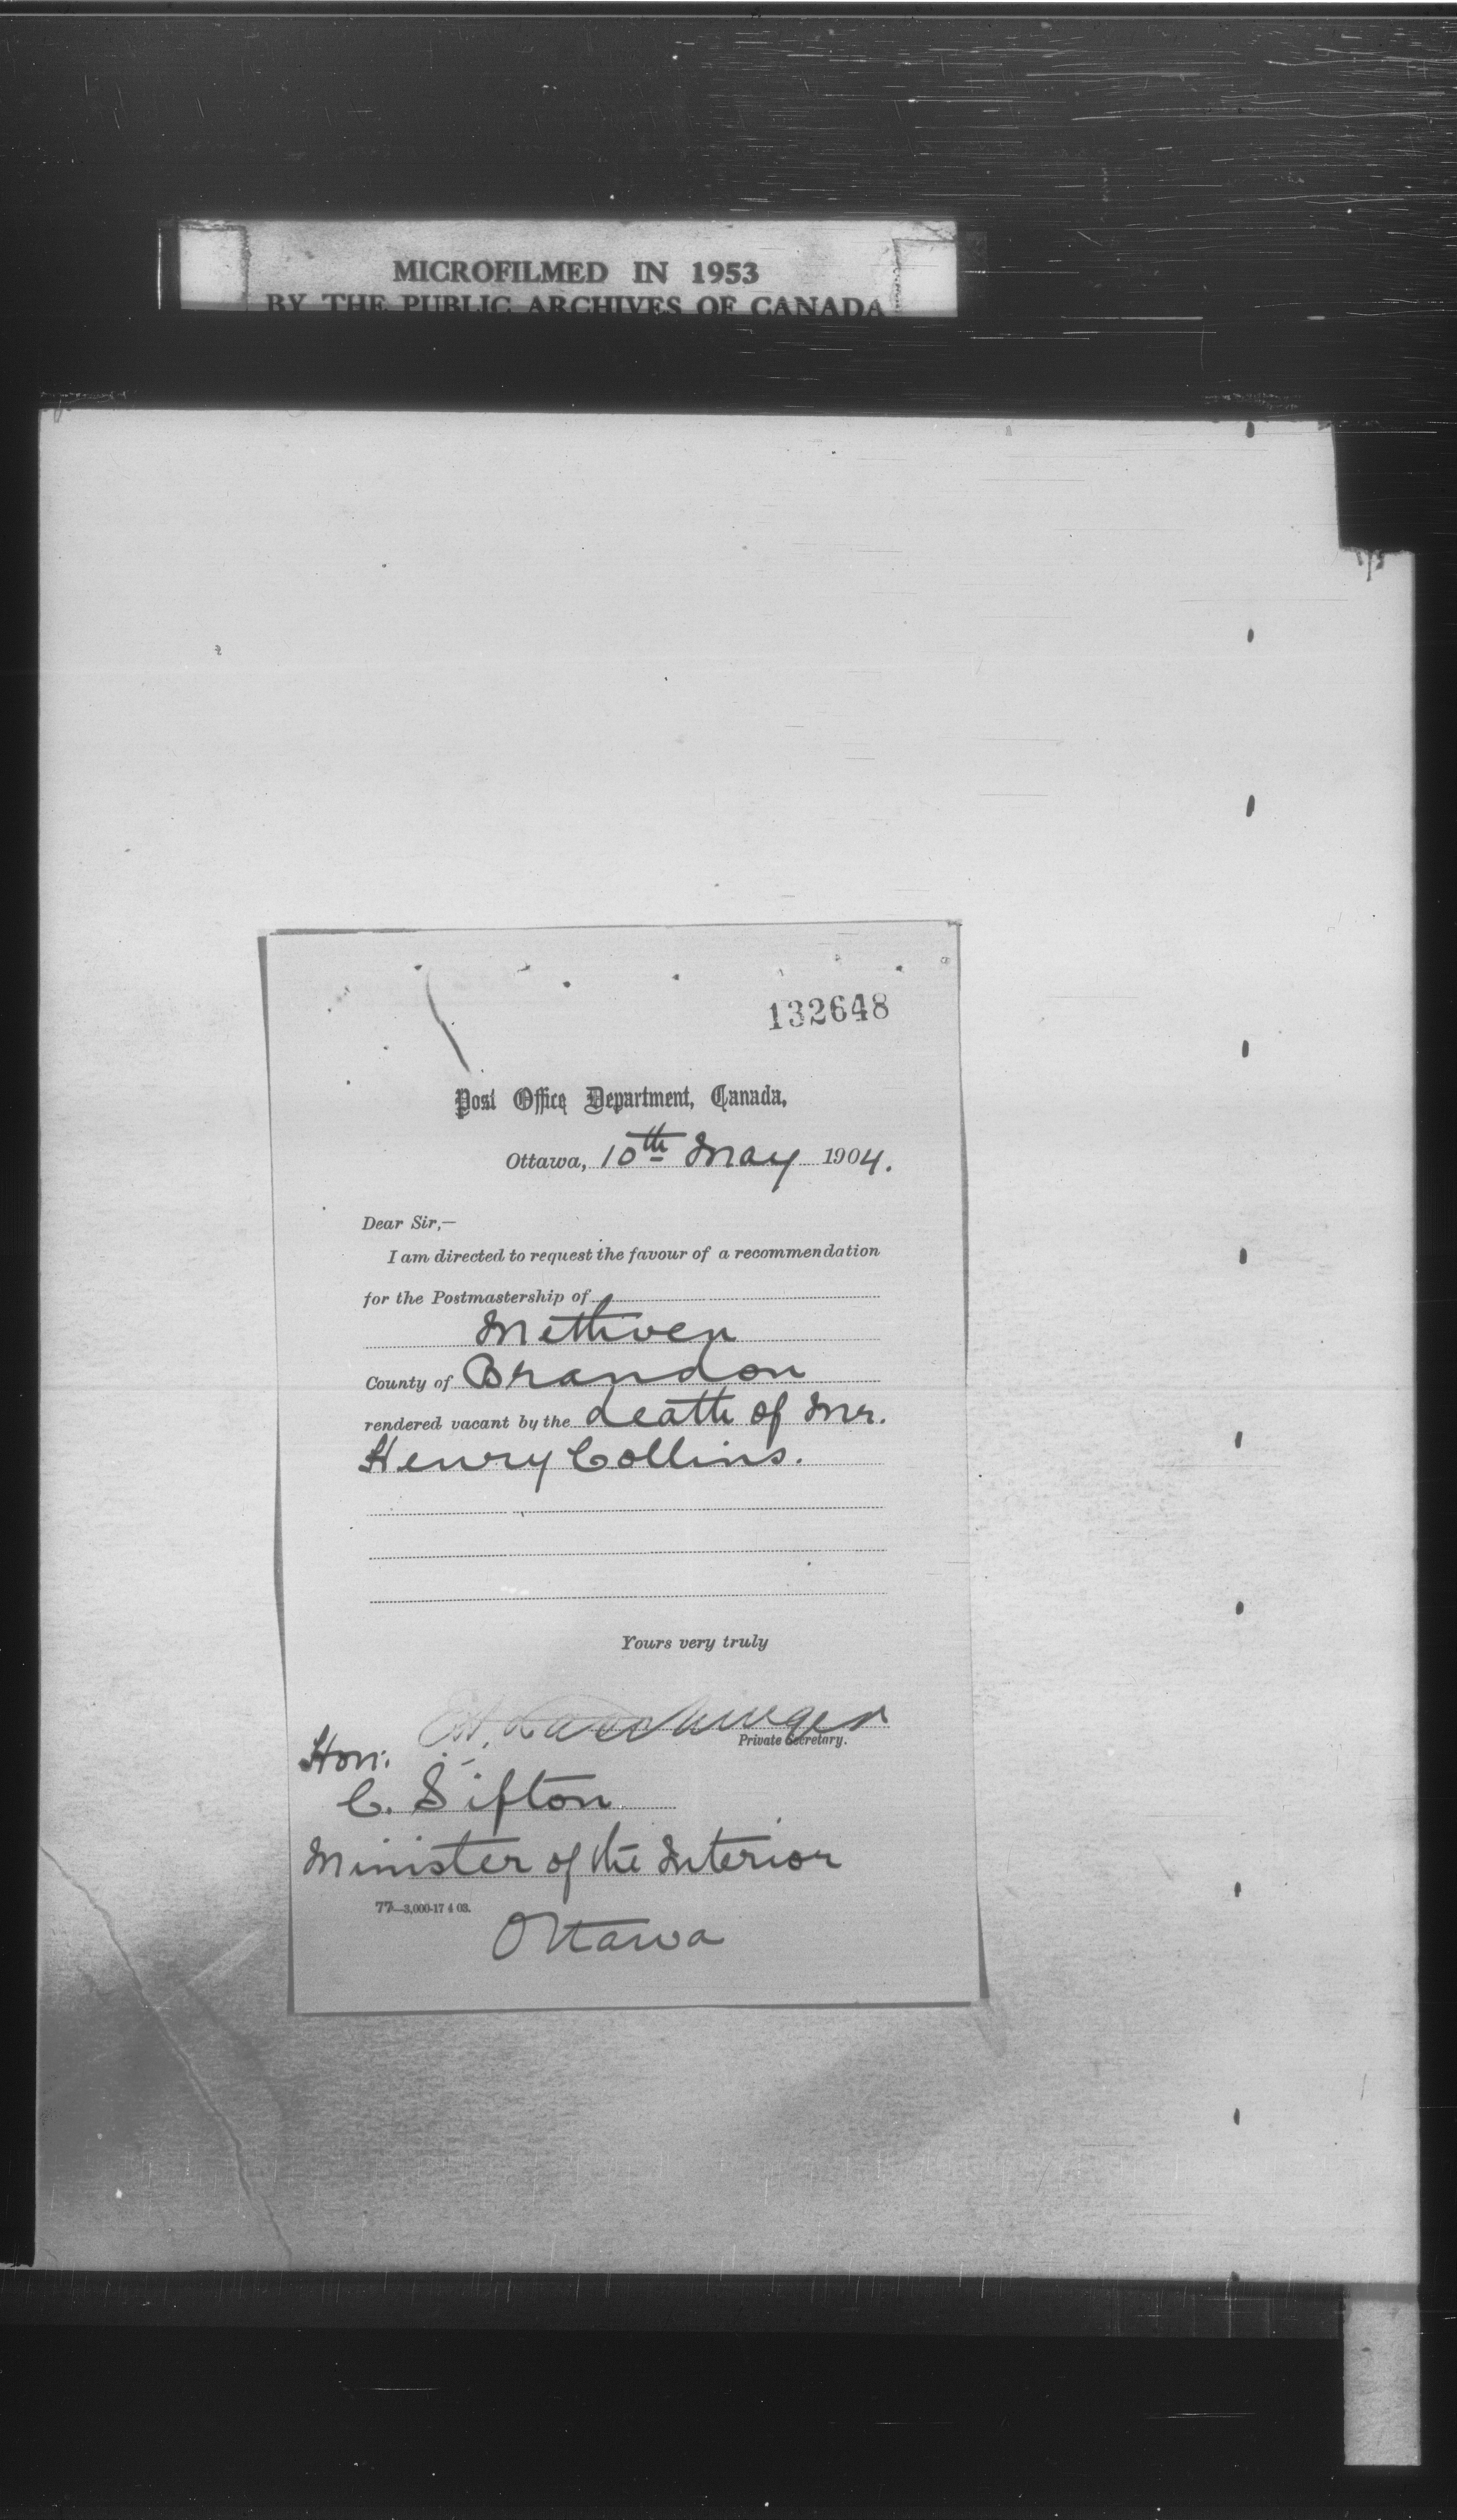 MICROFILMED IN 1953
BY THE PUBLIC ARCHIVES OF CANADA
132648
Post Office Department, Canada,
Ottawa, 10th May 1904.
Dear Sir,—
I am directed to request the favour of a recommendation
for the Postmastership of
Methven
County of Brandon
rendered vacant by the death of Mr.
Henry Collins.
Yours very truly
Private Secretary.
Hon:
C. Sifton
Minister of the Interior
77—3,000-17 4 03.
Ottawa